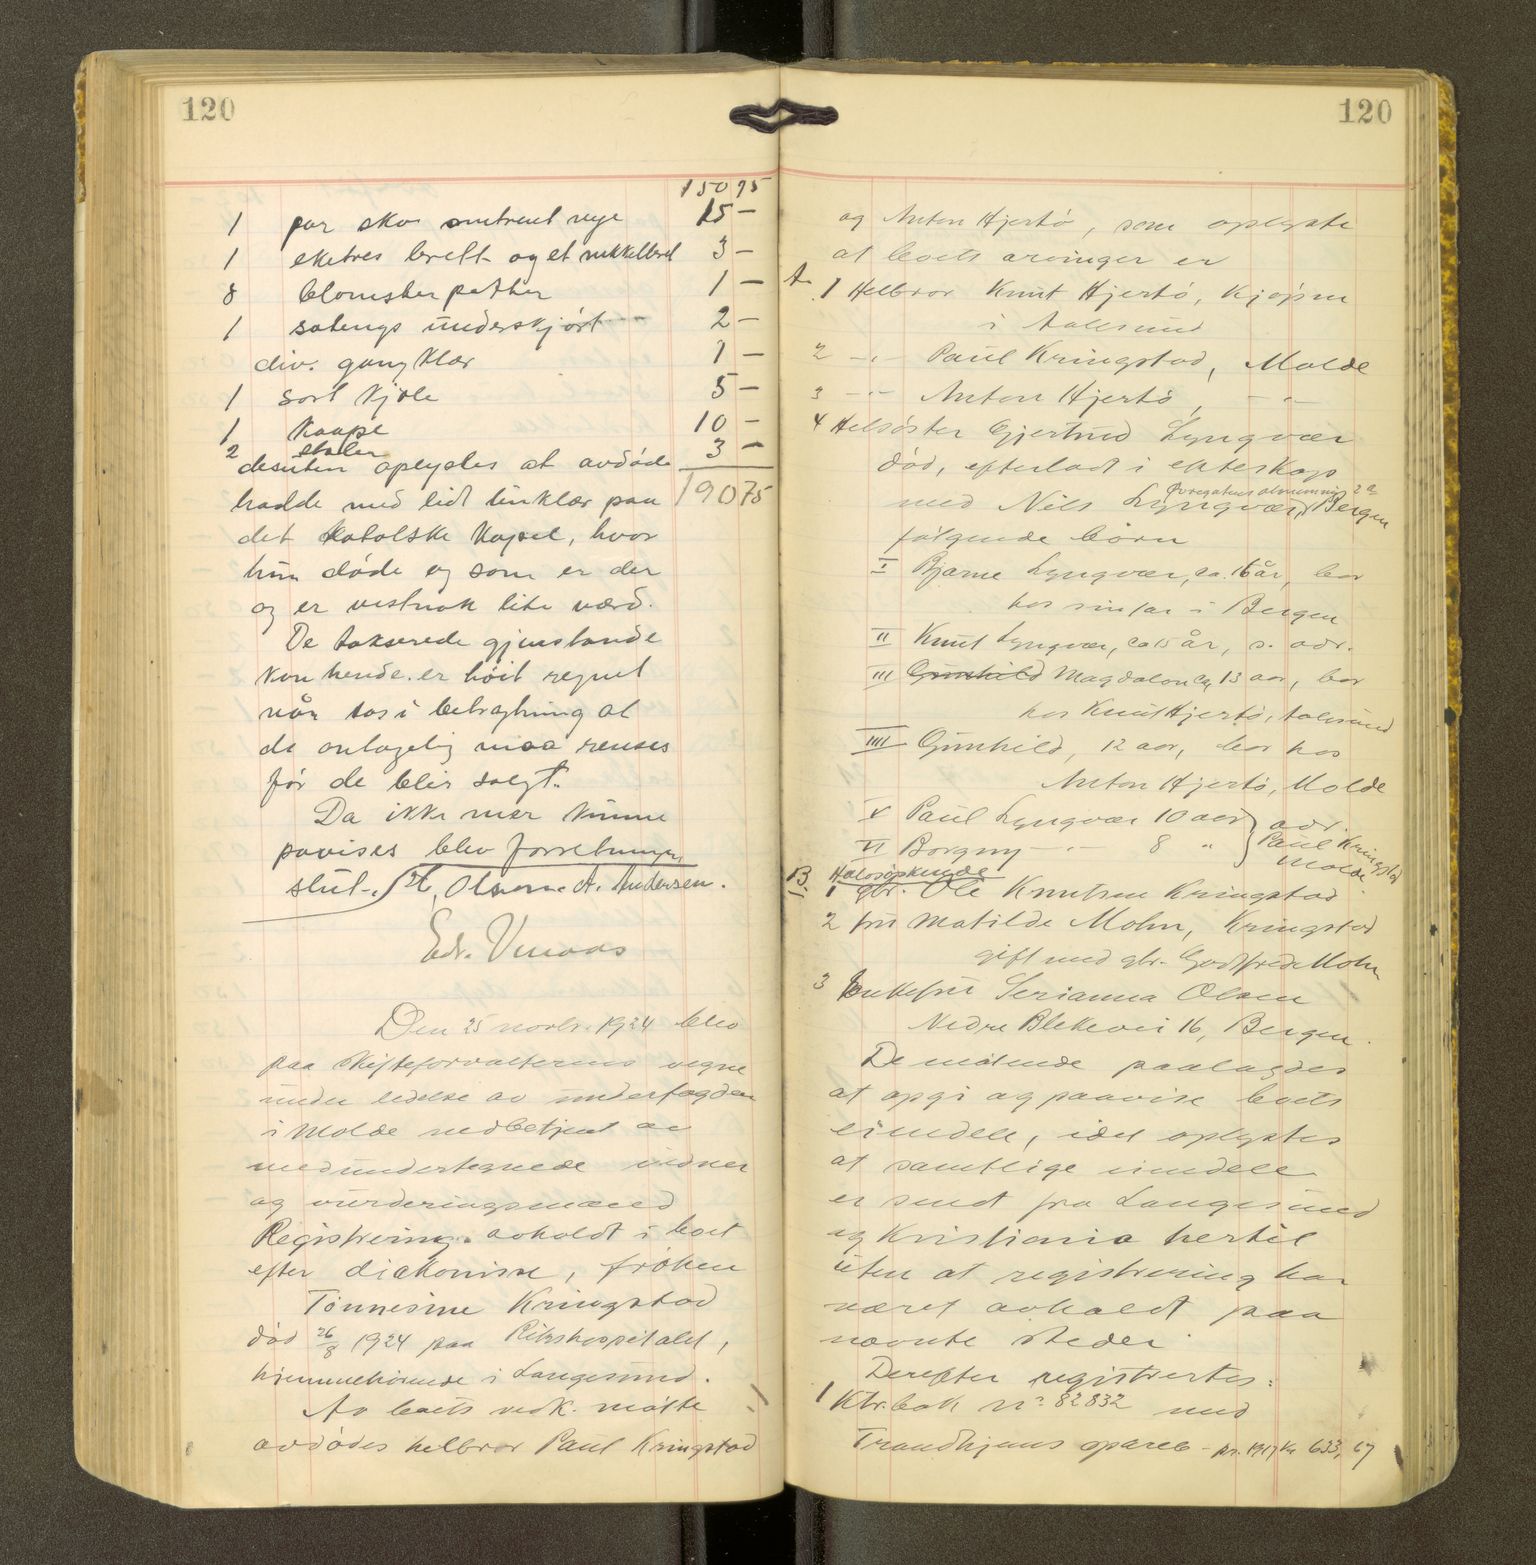 120
150 95
1 par sko omtrent nye 15 –
1 eketres brett og et nikkelbret 3 –
8 blomsterpotter 1 –
1 satengs underskjört 2 –
div. gang klær 1 –
1 sort kjole 5 –
1 kaape 10 –
2 stoler 3 –
desuten oplystes at avdöde
hadde med lidt linklær paa 190 75
det katolske kapel, hvor
hun döde og som er der
og er vistnok lite værd.
De takserede gjenstande
kan hende er höit regnet
når tas i betragtning at
de antagelig maa renses
för de blir solgt.
Da ikke mer kunne
pavises blev forretningen
slut. Olsen A. Andersen.
Edv.
Den 25 novbr. 1924 blev
paa skifteforvalterens vegne
under ledelse av underfogden
i Molde medbetjent av
medundertegnede vidner
og vurderingsmænd
Registrering avholdt i boet
efter diakonisse, fröken
Tönnesine Kringstad
död 26/8 1924 paa Rikshospitalet,
hjemmehörende i Langesund.
Av boets vedk. mötte
avdödes helbror Paul Kringstad
120
og Anton Hjertö, som oplyste
at boets arvinger er
A. 1 Helbror Knut Hjertö, Kjöpm
i Aalesund
2 –"– Paul Kringstad, Molde
3 –"– Anton Hjertö, –"–
4 Helsöster Gjertrud Lyngvær
död, efterladt i ekteskap
med Nils Lyngvær, Bergen
fölgende börn
I Bjarne Lyngvær, ca. 16 år, bor
hos sin far i Bergen
II Knut Lyngvær, ca 15 år, s. adr.
III Gunhild Magdalon ca 13 aar, bor
hos Knut Hjertö, Aalesund
IIII Gunhild, 12 aar, bor hos
Anton Hjertö, Molde
V Paul Lyngvær 10 aar } adr.
VI Borgny –"– 8 " } Paul Kringstad
Molde.
B. Halvsöskende
1 gbr. Ole Knutsen Kringstad
2 fru Matilde Mohn, Kringstad
gift med gbr. Godtfred Mohn
3 Enkefru Serianna Olsen
Nedre Blekevei 16, Bergen.
De mötende paalagdes
at opgi og paavise boets
eiendele, idet oplystes
at samtlige eiendele
er sendt fra Langesund
og Kristiania hertil
uten at registrering har
været avholdt paa
nævnte steder.
Derefter registrertes:
1 Ktr.bok nº 82832 med
Trondhjems spareb – pr. 1917 kr 633,67